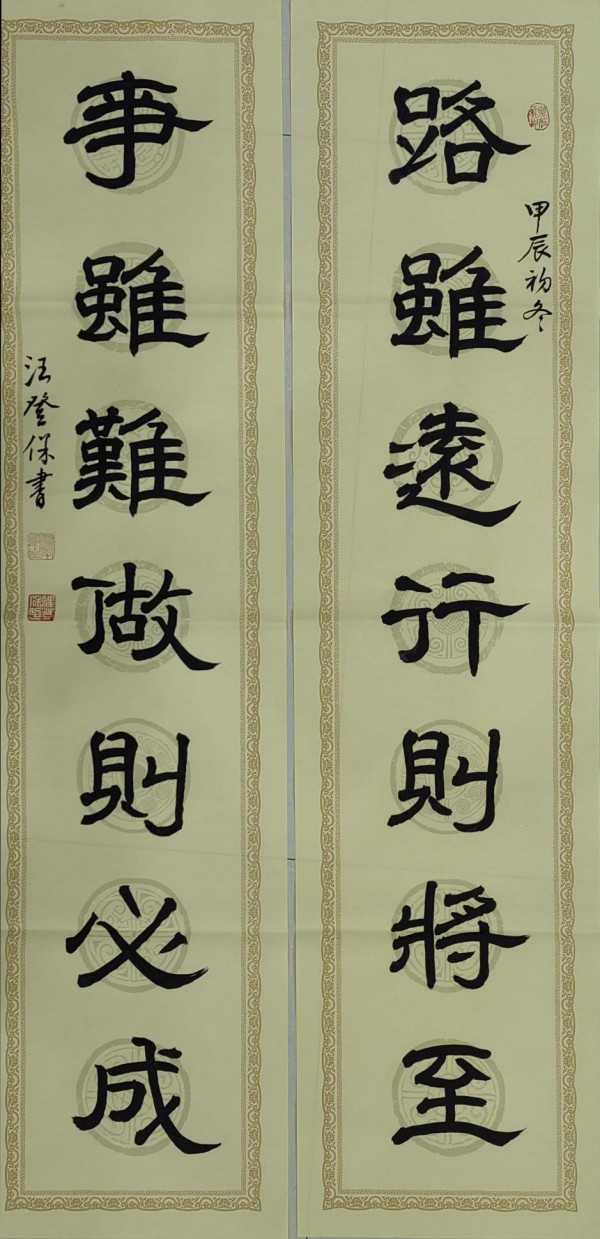 路雖遠行則將至
甲辰初冬
事雖難做則必成
汪登保書